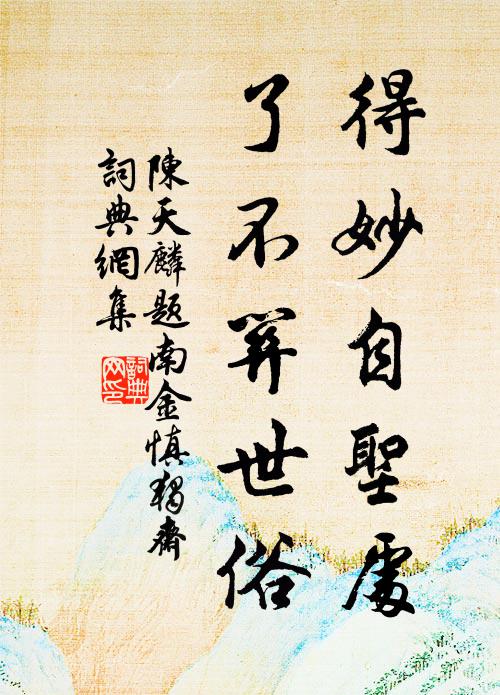 得妙自聖處
了不羿世俗
陳天麟題南金慎獨齋
詞典網集
詞典網印